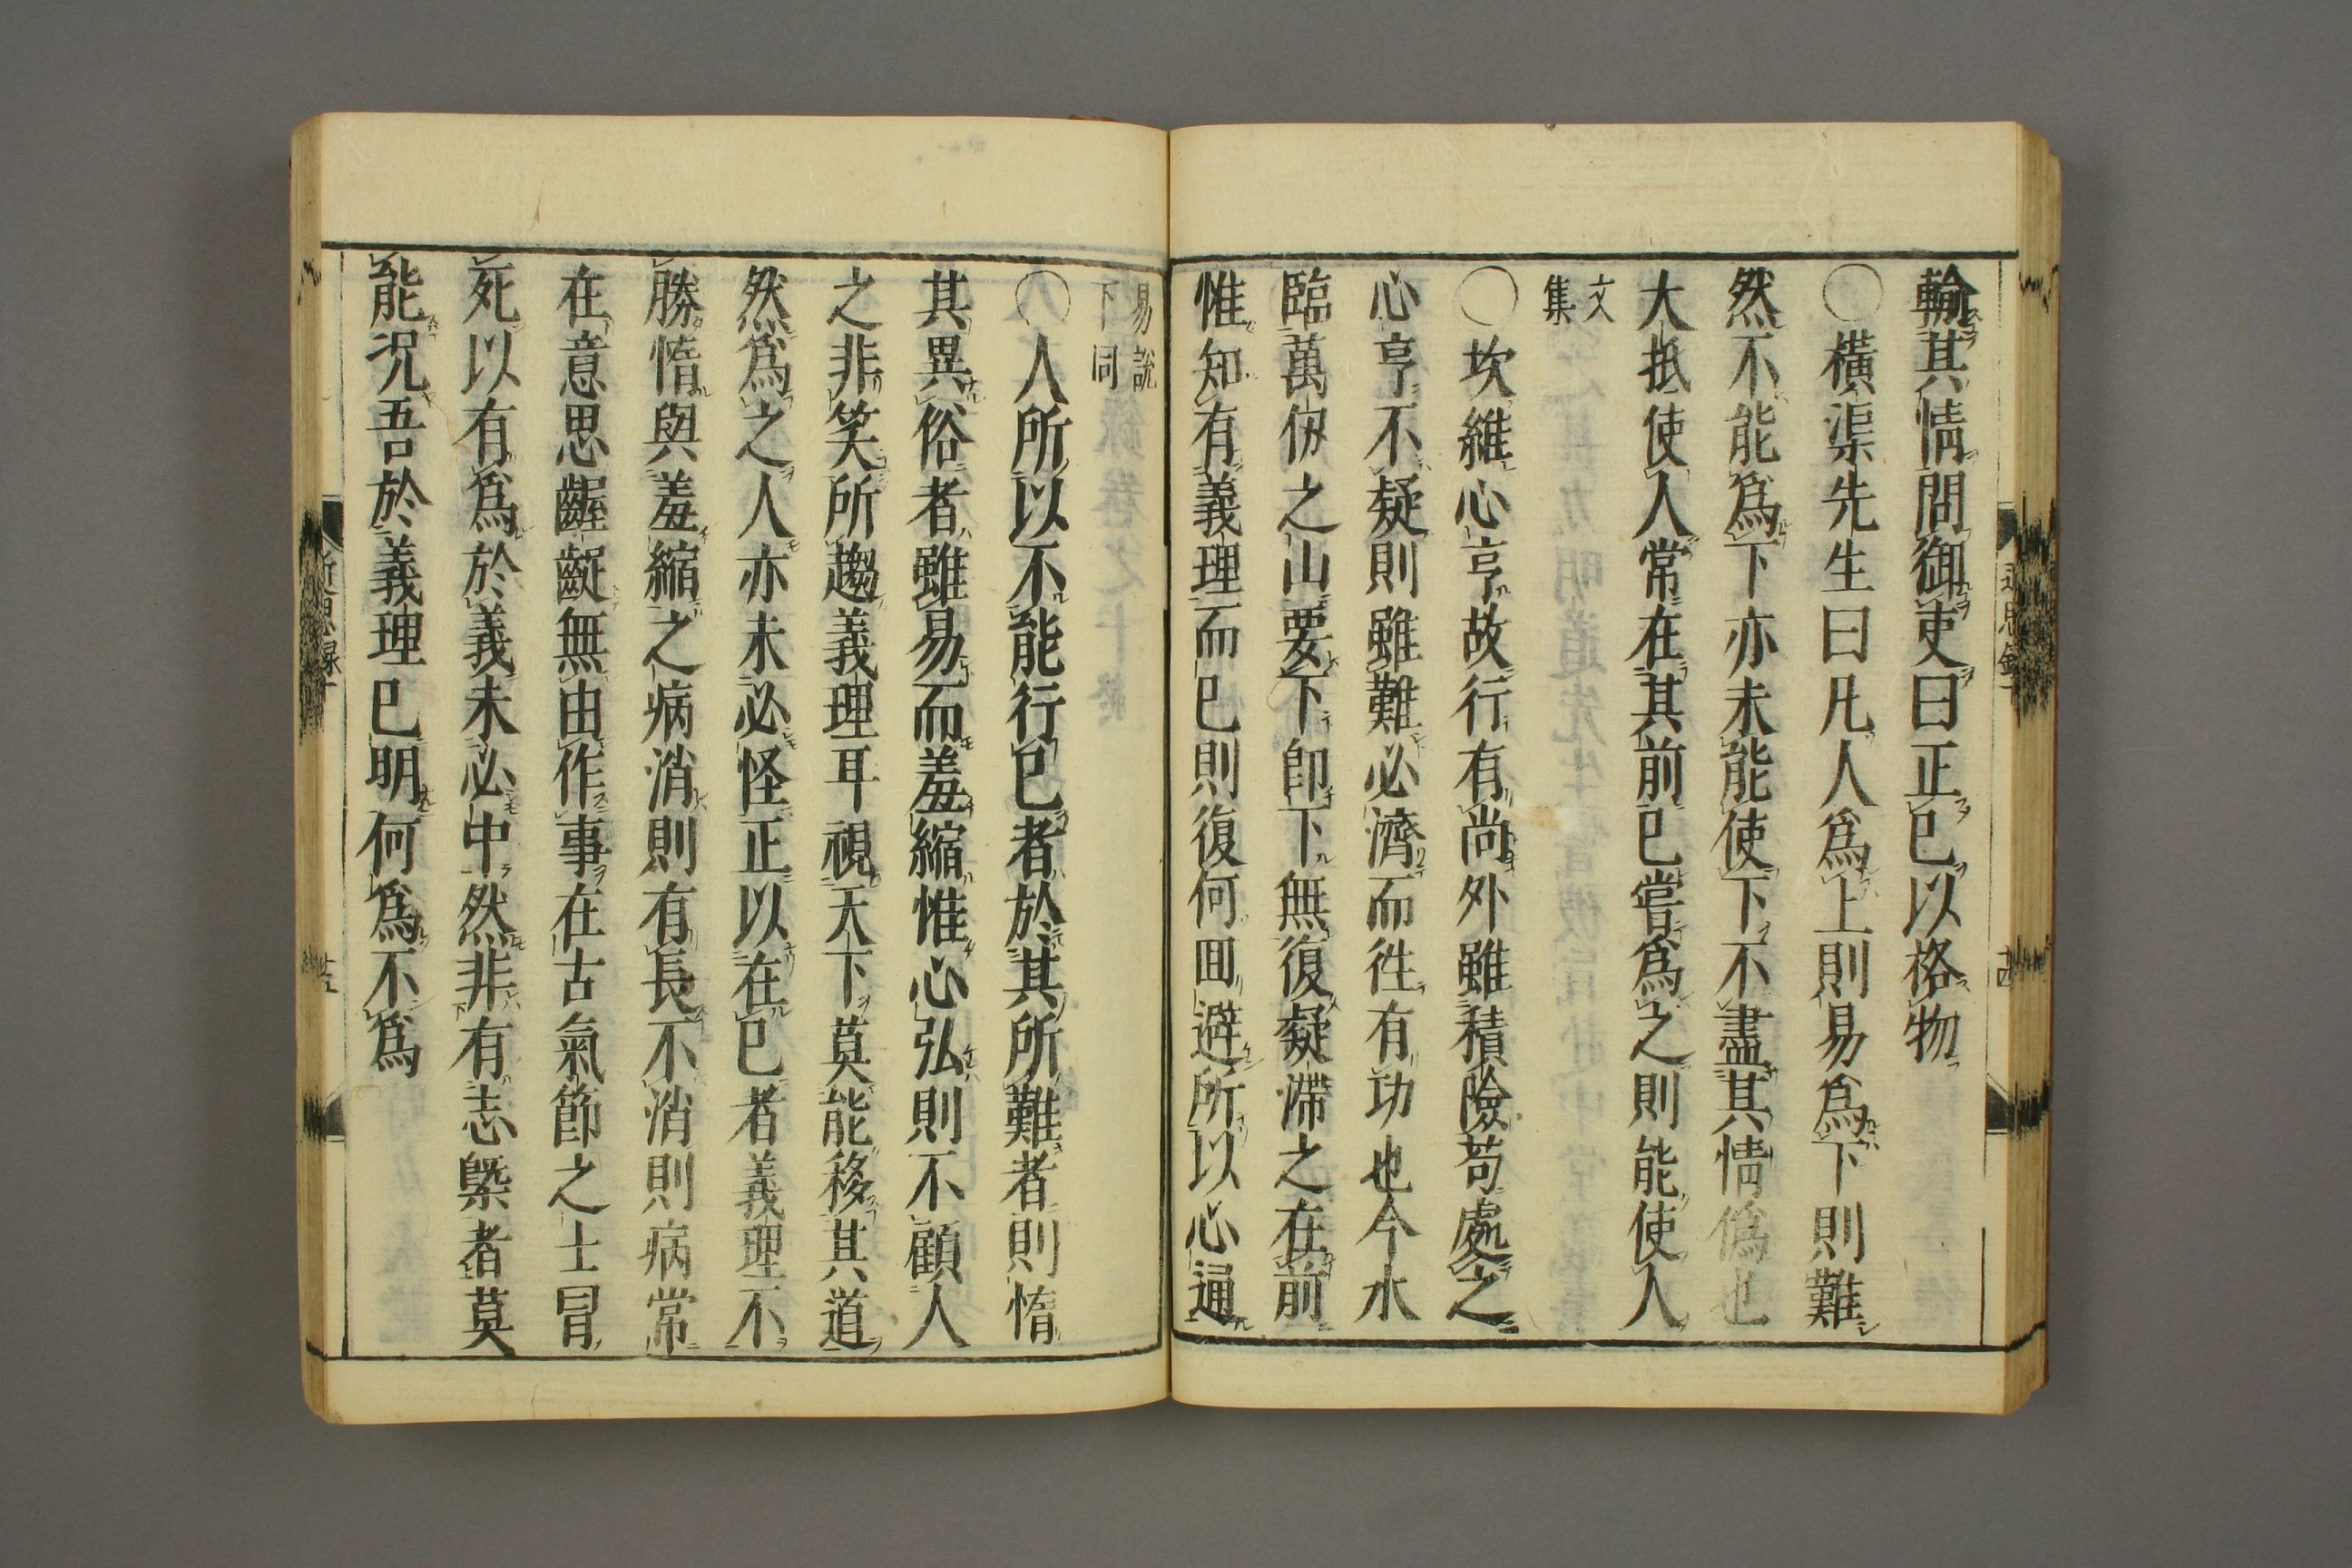 輸其情問御吏曰正已以格物
○橫渠先生曰凡人爲上則易爲下則難
然不能爲下亦未能使下不盡其情僞也
大抵使人常在其前已嘗爲之則能使人
文集
○坎維心亨故行有尚外雖積險苟處之
心亨不疑則雖難必濟而徃有功也今水
臨萬仞之山要下卽下無復凝滯之在前
惟知有義理而已則復何回避所以心通
易說下同
○人所以不能行已者於其所難者則惰
其異俗者雖易而羞縮惟心弘則不顧人
之非笑所趨義理耳視天下莫能移其道
然爲之人亦未必怪正以在已者義理不
勝惰與羞縮之病消則有長不消則病常
在意思齷齪無由作事在古氣節之士冒
死以有爲於義未必中然非有志槩者莫
能况吾於義理已明何爲不爲